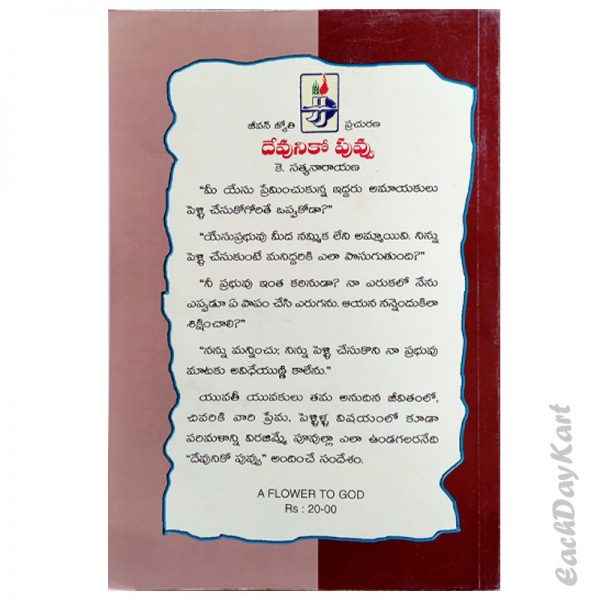 జీవన్ జ్యోతి ప్రచురణ
దేవునికో పువ్వు
కె. సత్యనారాయణ
"మీ యేసు ప్రేమించుకున్న ఇద్దరు అమాయకులు
పెళ్ళి చేసుకోగోరితే ఒప్పుకోడా?"
"యేసుప్రభువు మీద నమ్మిక లేని అమ్మాయివి. నిన్ను
పెళ్ళి చేసుకుంటే మనిద్దరికి ఎలా పొసుగుతుంది?"
"నీ ప్రభువు ఇంత కఠినుడా? నా ఎరుకలో నేను
ఎప్పుడూ ఏ పాపం చేసి ఎరుగను. ఆయన నన్నెందుకిలా
శిక్షించాలి?"
"నన్ను మన్నించు; నిన్ను పెళ్ళి చేసుకొని నా ప్రభువు
మాటకు అవిధేయుణ్ణి కాలేను."
యువతీ యువకులు తమ అనుదిన జీవితంలో,
చివరికి వారి ప్రేమ, పెళ్ళిళ్ళ విషయంలో కూడా
పరిమళాన్ని విరజిమ్మే పూవుల్లా ఎలా ఉండగలరనేది
"దేవునికో పువ్వు" అందించే సందేశం.
A FLOWER TO GOD
Rs : 20-00
EachDayKart